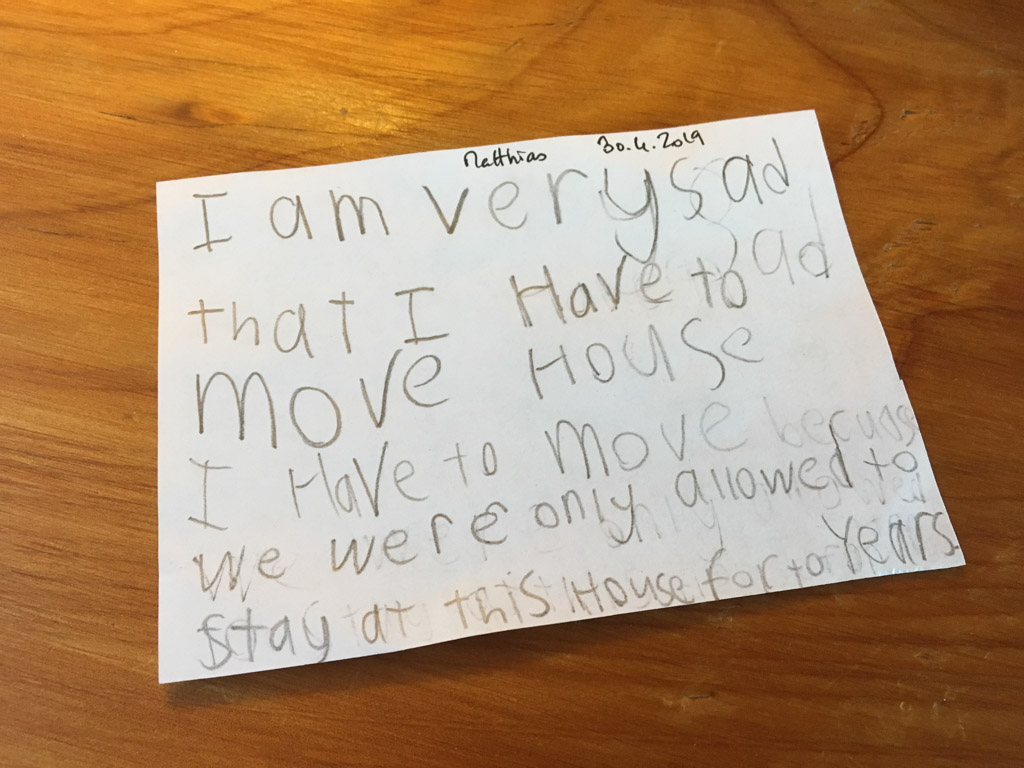 Matthias 30.4.2019
I am very sad
that I Have to sad
move House
I Have to move because
we were only allowed to
stay at this House for to Years.